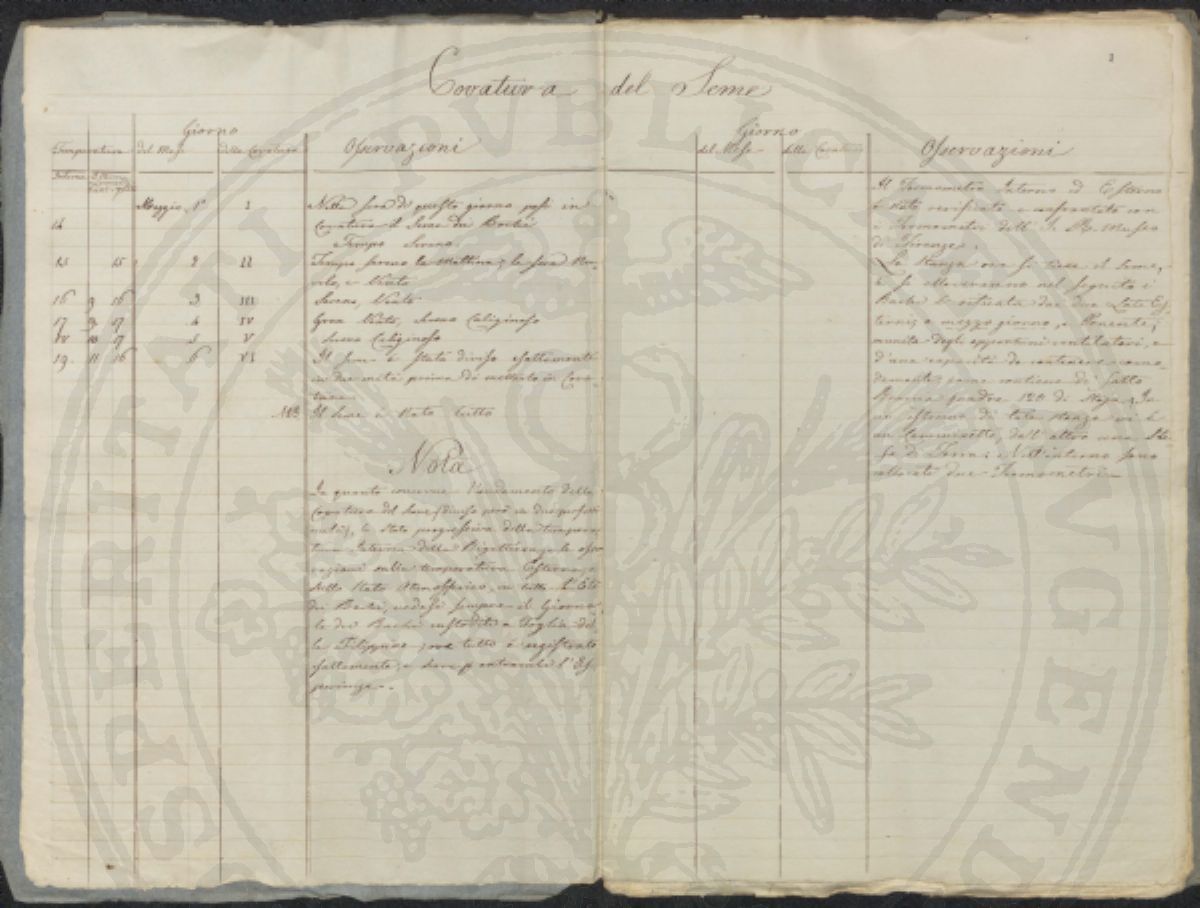 Covatura del Seme
2
Giorno
Temperatura del Mese della Covatura Osservazioni
Interna
Maggio 1° I Nella sera di questo giorno posi in
14 Covatura il Seme dei Bachi
Tempo Sereno.
15 15 2 II Tempo sereno la Mattina; la sera Nu-
volo, e Vento
16 9 16 3 III Sereno, Vento
17 9 17 4 IV Gran Vento, Sereno Caliginoso
18 10 17 5 V Sereno Caliginoso
19 11 16 6 VI Il seme è stato diviso esattamente
in due metà prima di metterlo in Cova-
tura
NB Il Seme è Nato tutto
Nota
In quanto concerne l'andamento della
Covatura del Seme (diviso però in due perfette
metà), lo stato progressivo della tempera-
tura Interna della Bigattiera, e le osser-
vazioni sulla temperatura Esterna, e
sullo stato Atmosferico, in tutte l'Età
dei Bachi, vedasi sempre il Giorna-
le dei Bachi custoditi a Foglia del-
le Filippine, ove tutto è registrato
esattamente, e serve p entrambe l'Es-
perienze.
Giorno
del Mese della Covatura Osservazioni
Il Termometro Interno ed Esterno
è stato verificato e confrontato con
i Termometri dell' I. R. Museo
di Firenze.
La Stanza ove si tiene il Seme,
e si alleveranno nel seguito i
Bachi è ventilata dai due Lati Es-
terni, a mezzogiorno, e Ponente;
munita degli opportuni ventilatori, e
d'una capacità da contenere como-
damente, come contiene di fatto
Braccia quadre 120 di Stoja. In
un estremo di tale stanza vi è
un Camminetto, dall'altro una Stu-
fa di Terra: Nell'interno sono
collocati due Termometri
SPERITATI PVBLICAE AVGENDAE